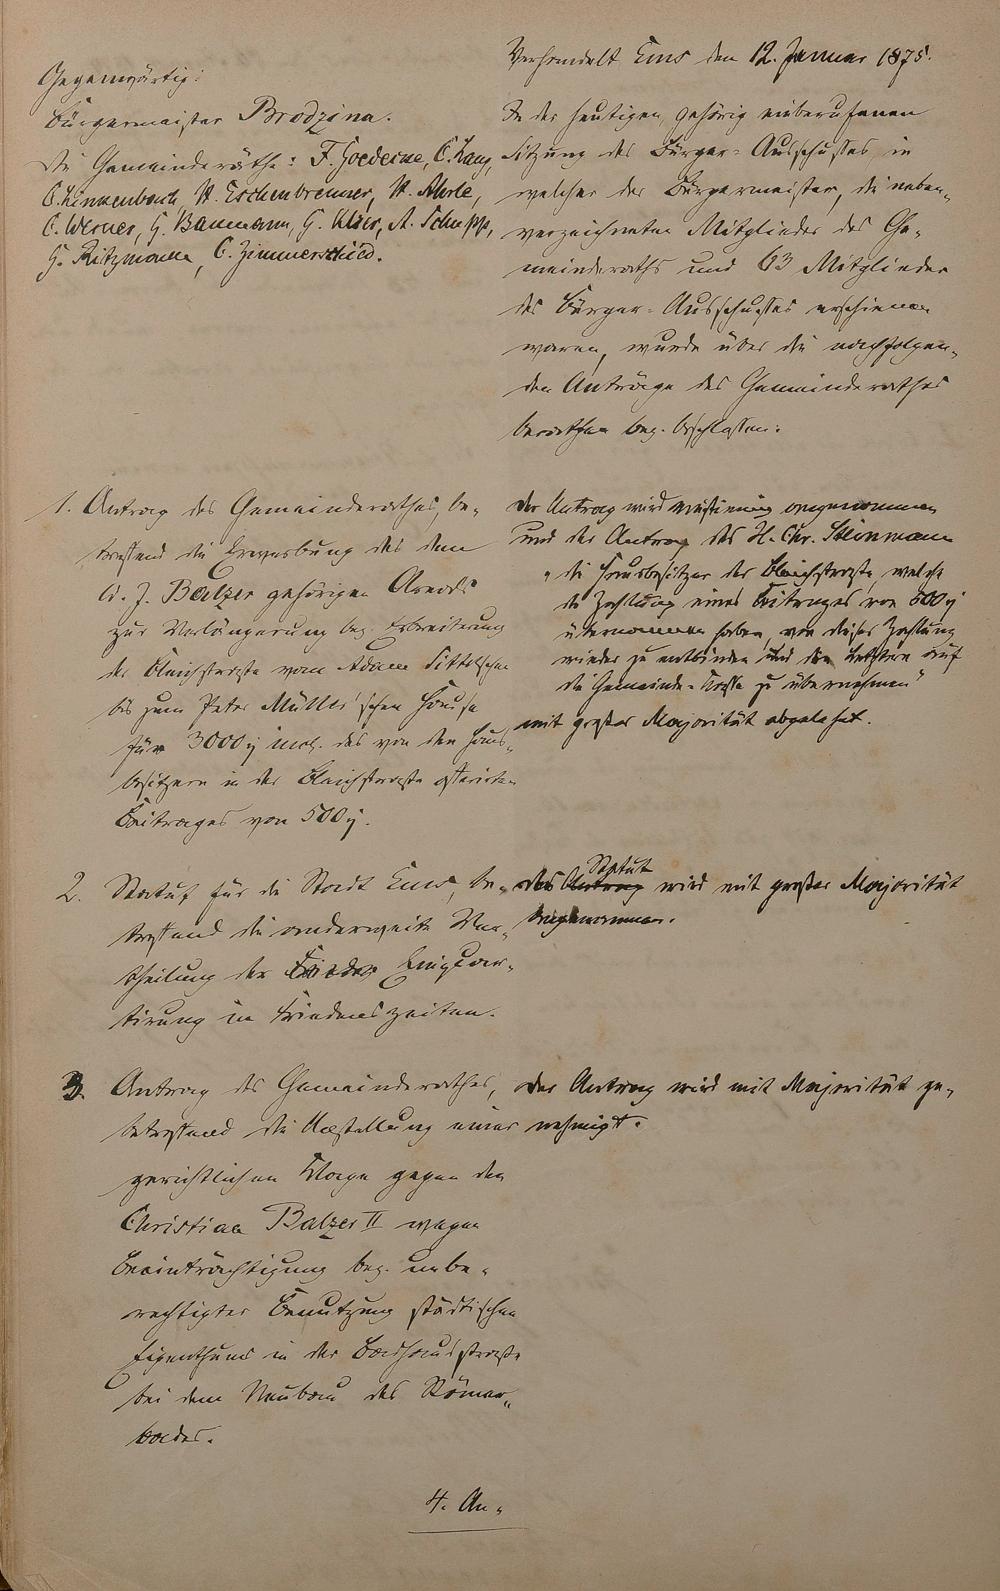 Gegenwärtig:
Bürgermeister Brodzina.
Die Gemeinderäthe: F. Goedecke, C. Kauz,
C. Linkenbach, W. Eschenbrenner, W. Ahrle,
C. Werner, G. Baumann, G. Kaiser, A. Schupp,
G. Ritzmann, C. Zimmerschied.
Verhandelt Ems den 12. Januar 1875.
In der heutigen, gehörig einberufenen
Sitzung des Bürger-Ausschusses, in
welcher der Bürgermeister, die neben-
verzeichneten Mitglieder des Ge-
meinderaths und 63 Mitglieder
des Bürger-Ausschusses erschienen
waren, wurde über die nachfolgen-
den Anträge des Gemeinderathes
berathen bez. beschlossen:
1. Antrag des Gemeinderathes, be-
treffend die Erwerbung des dem
Ch. J. Balzer gehörigen Areals
zur Verlängerung bez. Erbreiterung
der Bleichstraße vom Adam
bis zum Peter Müller'schen Hause
für 3000 incl. des von den Haus-
besitzern in der Bleichstraße offerirten
Beitrages von 500
Der Antrag wird einstimmig angenommen
und der Antrag des H. Chr. Steinmann
"die Hausbesitzer der Bleichstraße, welche
die Zahlung eines Beitrages von 500
übernommen haben, von dieser Zahlung
wieder zu entbinden und den Letztern auf
die Gemeinde-Kasse zu übernehmen"
mit großer Majorität abgelehnt.
2. Statut für die Stadt Ems, be-
treffend die anderweite Ver-
theilung der Einquar-
tirung in Friedenszeiten.
Statut
das Antrag wird mit großer Majorität
angenommen.
3. Antrag des Gemeinderathes,
betreffend die Anstellung einer
gerichtlichen Klage gegen den
Christian Balzer II wegen
Beeinträchtigung bez. unbe-
rechtigter Benutzung städtischen
Eigenthums in der Badhausstraße
bei dem Neubau des Römer-
bades.
Der Antrag wird mit Majorität ge-
nehmigt.
4. An-